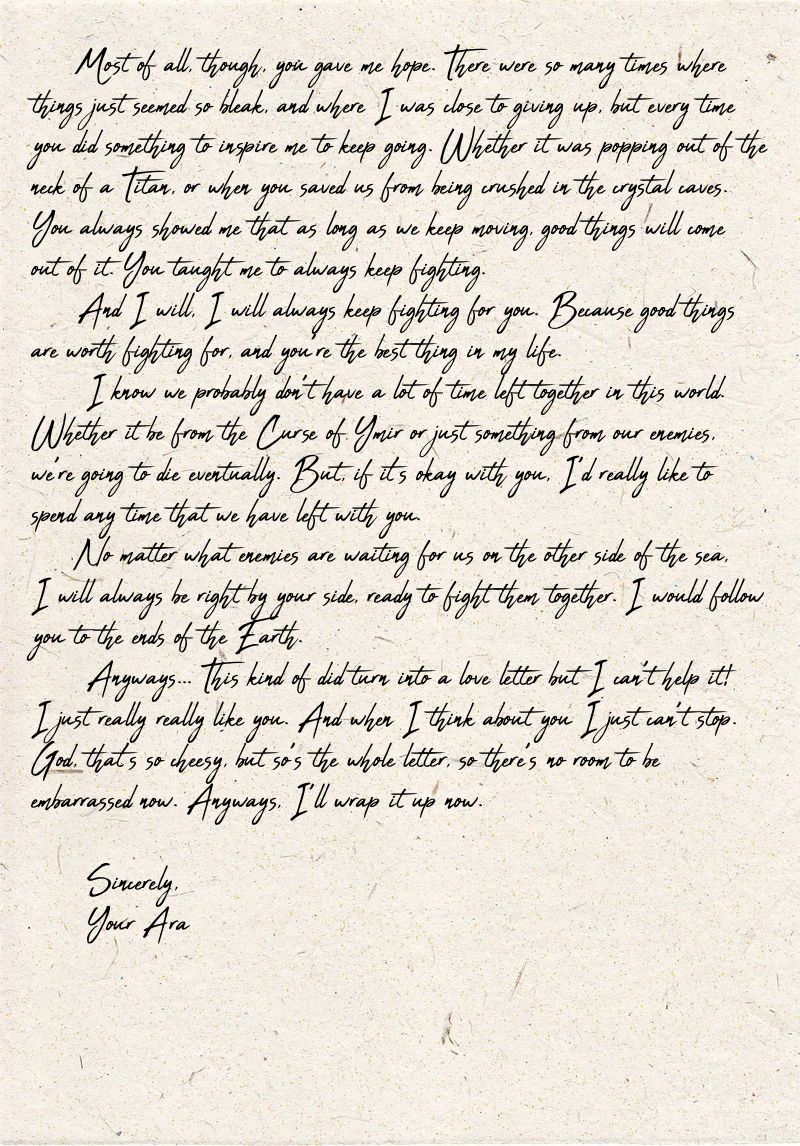 Most of all, though, you gave me hope. There were so many times where
things just seemed so bleak, and where I was close to giving up, but every time
you did something to inspire me to keep going. Whether it was popping out of the
neck of a Titan, or when you saved us from being crushed in the crystal caves.
You always showed me that as long as we keep moving, good things will come
out of it. You taught me to always keep fighting.
And I will, I will always keep fighting for you. Because good things
are worth fighting for, and you're the best thing in my life.
I know we probably don't have a lot of time left together in this world.
Whether it be from the Curse of Ymir or just something from our enemies,
we're going to die eventually. But, if it's okay with you, I'd really like to
spend any time that we have left with you.
No matter what enemies are waiting for us on the other side of the sea,
I will always be right by your side, ready to fight them together. I would follow
you to the ends of the Earth.
Anyways... This kind of did turn into a love letter but I can't help it!
I just really really like you. And when I think about you I just can't stop.
God, that's so cheesy, but so's the whole letter, so there's no room to be
embarrassed now. Anyways, I'll wrap it up now.
Sincerely,
Your Ara